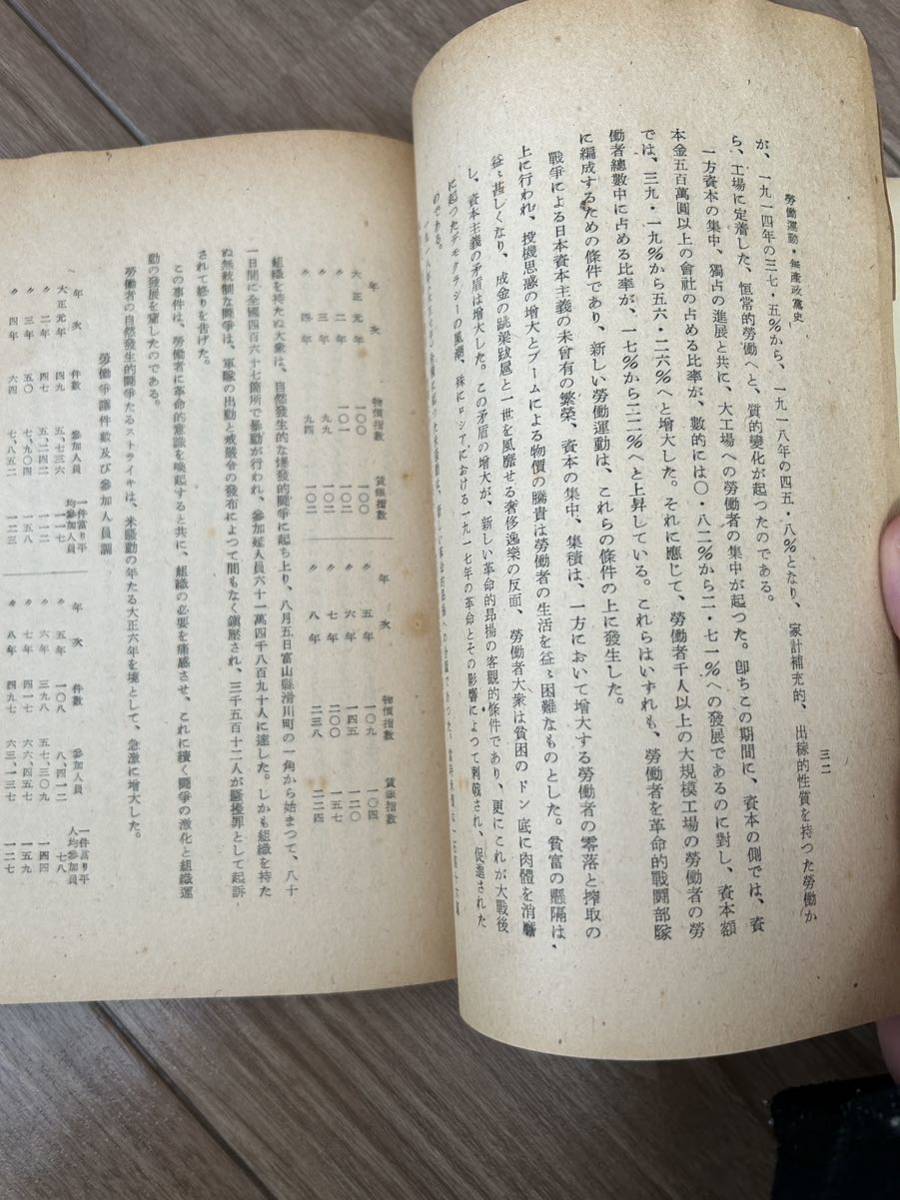 勞働運動・無產政黨史
三二
が、一九一四年の三七・五％から、一九一八年の四五・八％となり、家計補充的、出稼的性質を持つた勞働か
ら、工場に定着した、恒常的勞働へと、質的變化が起つたのである。
一方資本の集中、獨占の進展と共に、大工場への勞働者の集中が起つた。卽ちこの期間に、資本の側では、資
本金五百萬圓以上の會社の占める比率が、數的には〇・八二％から二・七一％への發展であるのに對し、資本額
では、三九・一九％から五六・二六％へと增大した。それに應じて、勞働者千人以上の大規模工場の勞働者の勞
働者總數中に占める比率が、一七％から二二％へと上昇している。これらはいずれも、勞働者を革命的戰鬪部隊
に編成するための條件であり、新しい勞働運動は、これらの條件の上に發生した。
戰爭による日本資本主義の未曾有の繁榮、資本の集中、集積は、一方において增大する勞働者の零落と搾取の
上に行われ、投機思惑の增大とブームによる物價の騰貴は勞働者の生活を益〻困難なものとした。貧富の懸隔は、
益〻甚しくなり、成金の跳梁跋扈と一世を風靡せる奢侈逸樂の反面、勞働者大衆は貧困のドン底に肉體を消磨
し、資本主義の矛盾は增大した。この矛盾の增大が、新しい革命的昂揚の客觀的條件であり、更にこれが大戰後
に起つたデモクラシーの風潮、殊にロシアにおける一九一七年の革命とその影響によつて刺戟され、促進された
のである。
年次　物價指數　賃銀指數　年次　物價指數　賃銀指數
大正元年　一〇〇　一〇〇　〃五年　一〇九　一〇四
〃二年　一〇一　一〇二　〃六年　一四五　一二〇
〃三年　九九　一〇二　〃七年　二〇〇　一五七
〃四年　九四　一〇二　〃八年　二三八　二二四
組織を持たぬ大衆は、自然發生的な爆發的鬪爭に起ち上り、八月五日富山縣滑川町の一角から始まつて、八十
一日間に全國四百六十七箇所で暴動が行われ、參加延人員六十一萬四千八百九十人に達した。しかも組織を持た
ぬ無統制な鬪爭は、軍隊の出動と戒嚴令の發布によつて間もなく鎭壓され、三千五百十二人が騷擾罪として起訴
されて終りを吿げた。
この事件は、勞働者に革命的意識を喚起すると共に、組織の必要を痛感させ、これに續く鬪爭の激化と組織運
動の發展を齎したのである。
勞働者の自然發生的鬪爭たるストライキは、米騷動の年たる大正六年を境として、急激に增大した。
勞働爭議件數及び參加人員調
年次　件數　參加人員　一件當り平均參加人員　年次　件數　參加人員　一件當り平均參加人員
大正元年　四九　五、七三六　一一七　〃五年　一〇八　八、四一二　七八
〃二年　四七　五、二四二　一一二　〃六年　三九八　五七、三〇九　一四四
〃三年　五〇　七、九〇四　一五八　〃七年　四一七　六六、四五七　一五九
〃四年　六四　七、八五二　一二三　〃八年　四九七　六三、一三七　一二七